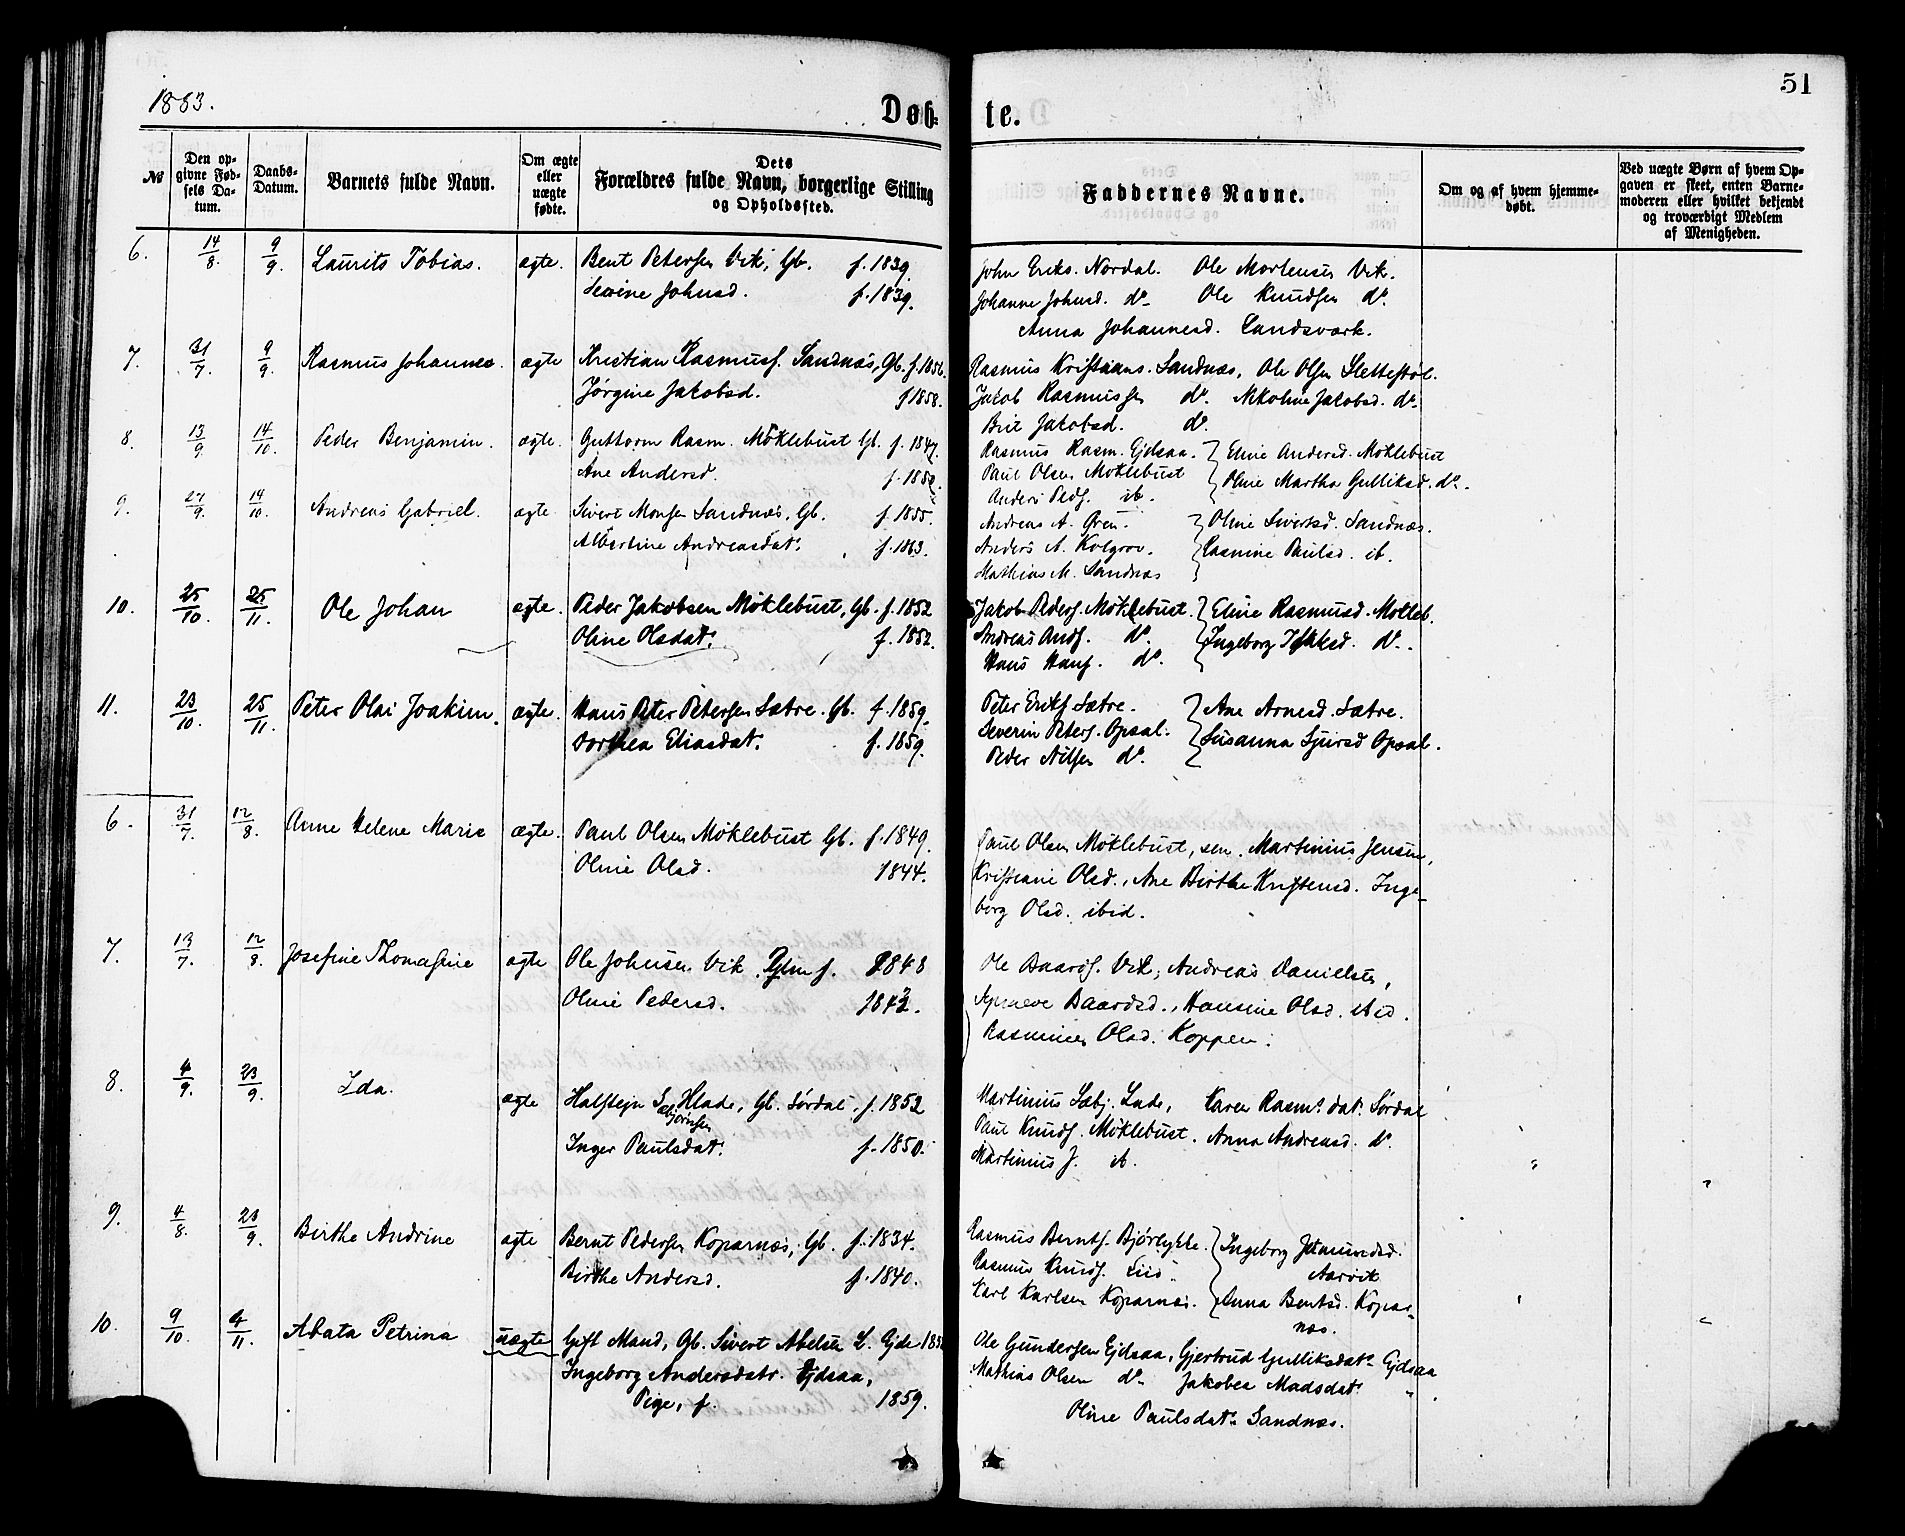 1883.
51
Døb-
te.
№
Den op-
givne Fød-
sels Da-
tum.
Daabs-
Datum.
Barnets fulde Navn.
Om ægte
eller
uægte
fødte.
Dets
Forældres fulde Navn, borgerlige Stilling
og Opholdssted.
Faddernes Navne.
Om og af hvem hjemme-
døbt.
Ved uægte Børn af hvem Op-
gaven er skeet, enten Barne-
moderen eller hvilket bekjendt
og troværdigt Medlem
af Menigheden.
6. 14/8. 9/9. Laurits Tobias. ægte. Bent Petersen Vik, Gb. f. 1839.
Johnsd. f. 1839.
John Eriks. Nordal. Ole Mortensen Vik.
Johanne Johnsd. do. Ole Knudsen do.
Anna Johannesd. Landsværk.
7. 31/7. 9/9. Rasmus Johannes ægte Kristian Rasmuss. Sandnæs, Gb. f. 1856.
Jørgine Jakobsd. f 1858.
Rasmus Kristians. Sandnæs. Ole Olsen Slettestøl.
Jakob Rasmussen do. Nikoline Jakobsd. do.
Brit Jakobsd. do.
8. 13/9. 14/10. Peder Benjamin. ægte. Guttorm Rasm. Møklebust Gb. f. 1847.
Ane Andersd.
Rasmus Rasm. Gjdsaa. Eline Andersd. Møklebust
Paul Olsen Møklebust Oline Martha Gulliksd. do.
Anders Peds. ib.
9. 27/9. 14/10. Andreas Gabriel. ægte Sivert Monsen Sandnæs, Gb. f. 1855.
Albertine Andreasdatr. f. 1863.
Andreas A. Oline Sivertsd. Sandnæs.
Anders A. Kolgrov. Rasmine Paulsd. ib.
Mathias M. Sandnæs
10. 25/10. 25/11. Ole Johan ægte. Peder Jakobsen Møklebust, Gb. f. 1852
Oline Olsdatr. f. 1852.
Jakob Peders. Møklebust. Eline Rasmusd. Mokleb.
Andreas Ands. do. Ingeborg do.
Hans Hans. do.
11. 23/10. 25/11. Peter Olai Joakim. ægte. Hans Peter Petersen Sætre. Gb. f. 1859.
Dorthea Eliasdat. f. 1859.
Peter Eriks. Sætre. Ane Arnesd. Sætre.
Severin Peters. Opsal. Susanna Sjursd Opsal.
Peder Nilsen do.
6. 31/7. 12/8. Anne Helene Marie ægte. Paul Olsen Møklebust Gb. f. 1849.
Oline Olsd. 1844.
Paul Olsen Møklebust, sen. Martinius Jensen,
Kristiane Olsd., Ane Birthe Kristensd. Inge-
borg Olsd. ibid.
7. 13/7. 12/8. Josefine Thomasine ægte Ole Johnsen Vik f. 1848
Oline Pedersd.
Ole Baards. Vik, Andreas Danielsen,
Baardsd., Hansine Olsd. ibid.
Rasmine Olsd. Koppen.
8. 4/9. 23/9. Ida. ægte Halstejn Sæbjørnsen Hlade, Gb. Sørdal, f. 1852
Inger Paulsdat. f. 1850.
Martinius Sæbj. Lade, Karen Rasms dat. Sørdal
Paul Knuds. Møklebust. Anna Andreasd. do.
Martinius J. ib.
9. 4/8. 23/9. Birthe Andrine ægte Bernt Pedersen Koparnæs, Gb. f. 1834.
Birthe Andersd. f. 1840.
Rasmus Bernts. Bjørlykke. Ingeborg
Rasmus Knuds. Aarvik
Karl Karlsen Koparnæs. Anna Bentsd. Kopar-
næs.
10. 9/10. 4/11. Abata Petrina uægte Gift Mand, Gb. Sivert Abelsen L. Gjde
Ingeborg Andersdatr. Gjdsaa,
Pige, f. 1859.
Ole Gundersen Gjdsaa, Gjertrud Gulliksdatr Gjdsaa
Mathias Olsen do. Jakobea Madsdatr "
Oline Paulsdatr Sandnæs.